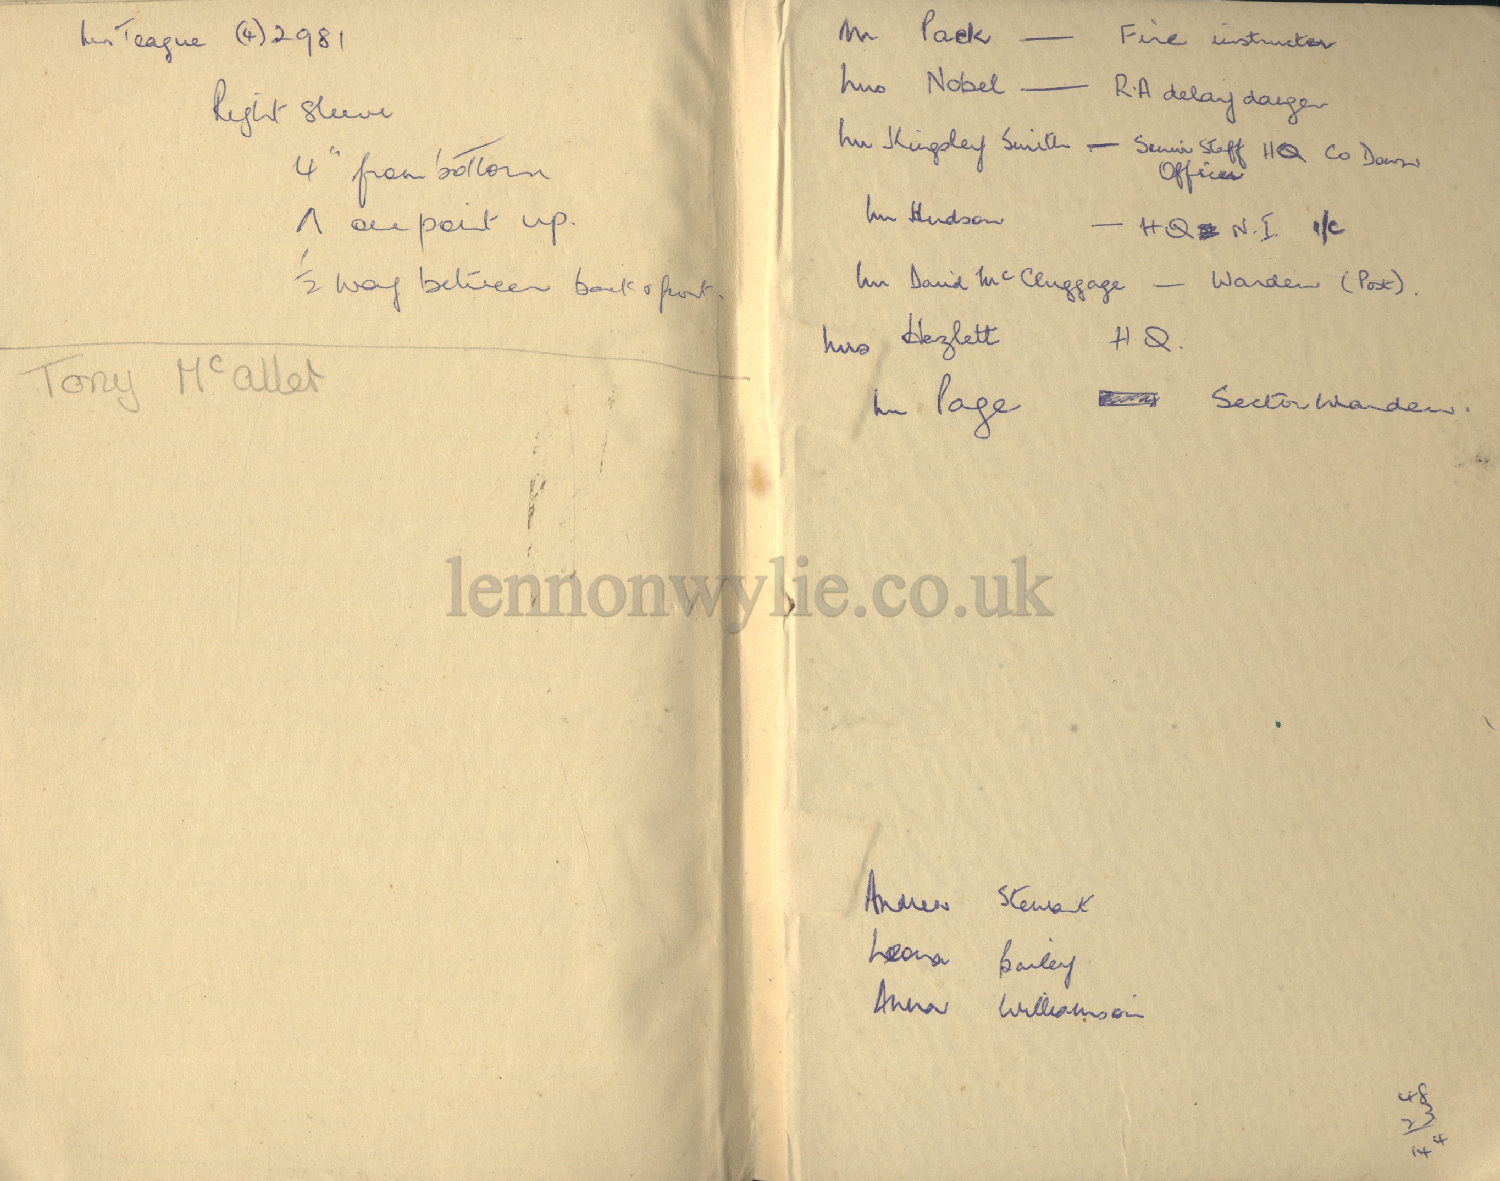 Mrs Teague (4) 2981
Right Sleeve
4" from bottom
Λ one point up.
½ way between back & front.
Tony McAllet
Mr Pack — Fire instructor
Mrs Nobel — R.A delay danger
Mr Kingsley Smith — Senior Staff HQ Co Down
Officer
Mr Hudson — HQ N.I. i/c
Mr David McCluggage — Warden (Post).
Mrs Hezlett HQ.
Mr Page Sector Warden.
lennonwylie.co.uk
Andrew Stewart
Leona Bailey
Anna Williamson
48